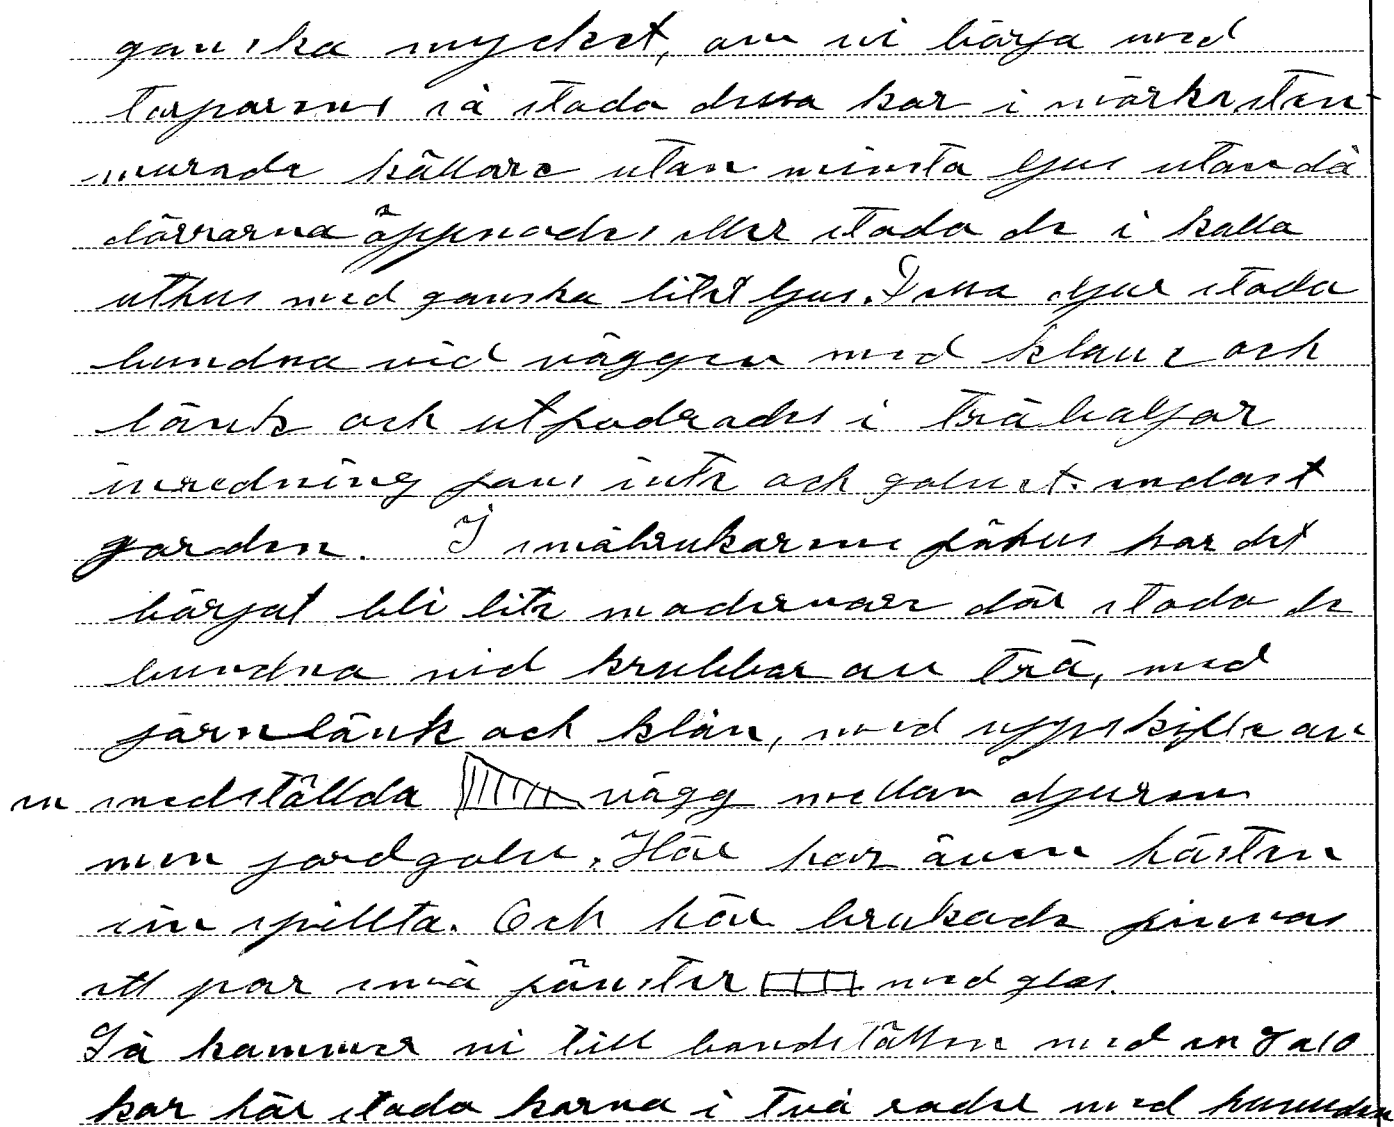 ganska mycket, om vi börja med
torparens så stodo dessa kor i mörka, sten-
murade källare utan minsta ljus utan då
dörrarna öppnades eller stodo de i kalla
uthus med ganska litet ljus. Dessa djur stodo
bundna vid väggen med klave och
länk och utfodrades i träbaljor
inredning fans inte och golvet endast
jorden. I småbrukarens fähus har det
börjat bli lite modernare där stodo de
bundna vid krubbor av trä, med
järnlänk och klav, med uppskiftear
en snedställda vägg mellan djuren
men jordgolv. Här har även hästen
sin spillta. Och här brukade finnas
ett par små fönster med glas.
Så kommer vi till bondställen med en 8 a 10
kor här stodo korna i två rader med huvuden